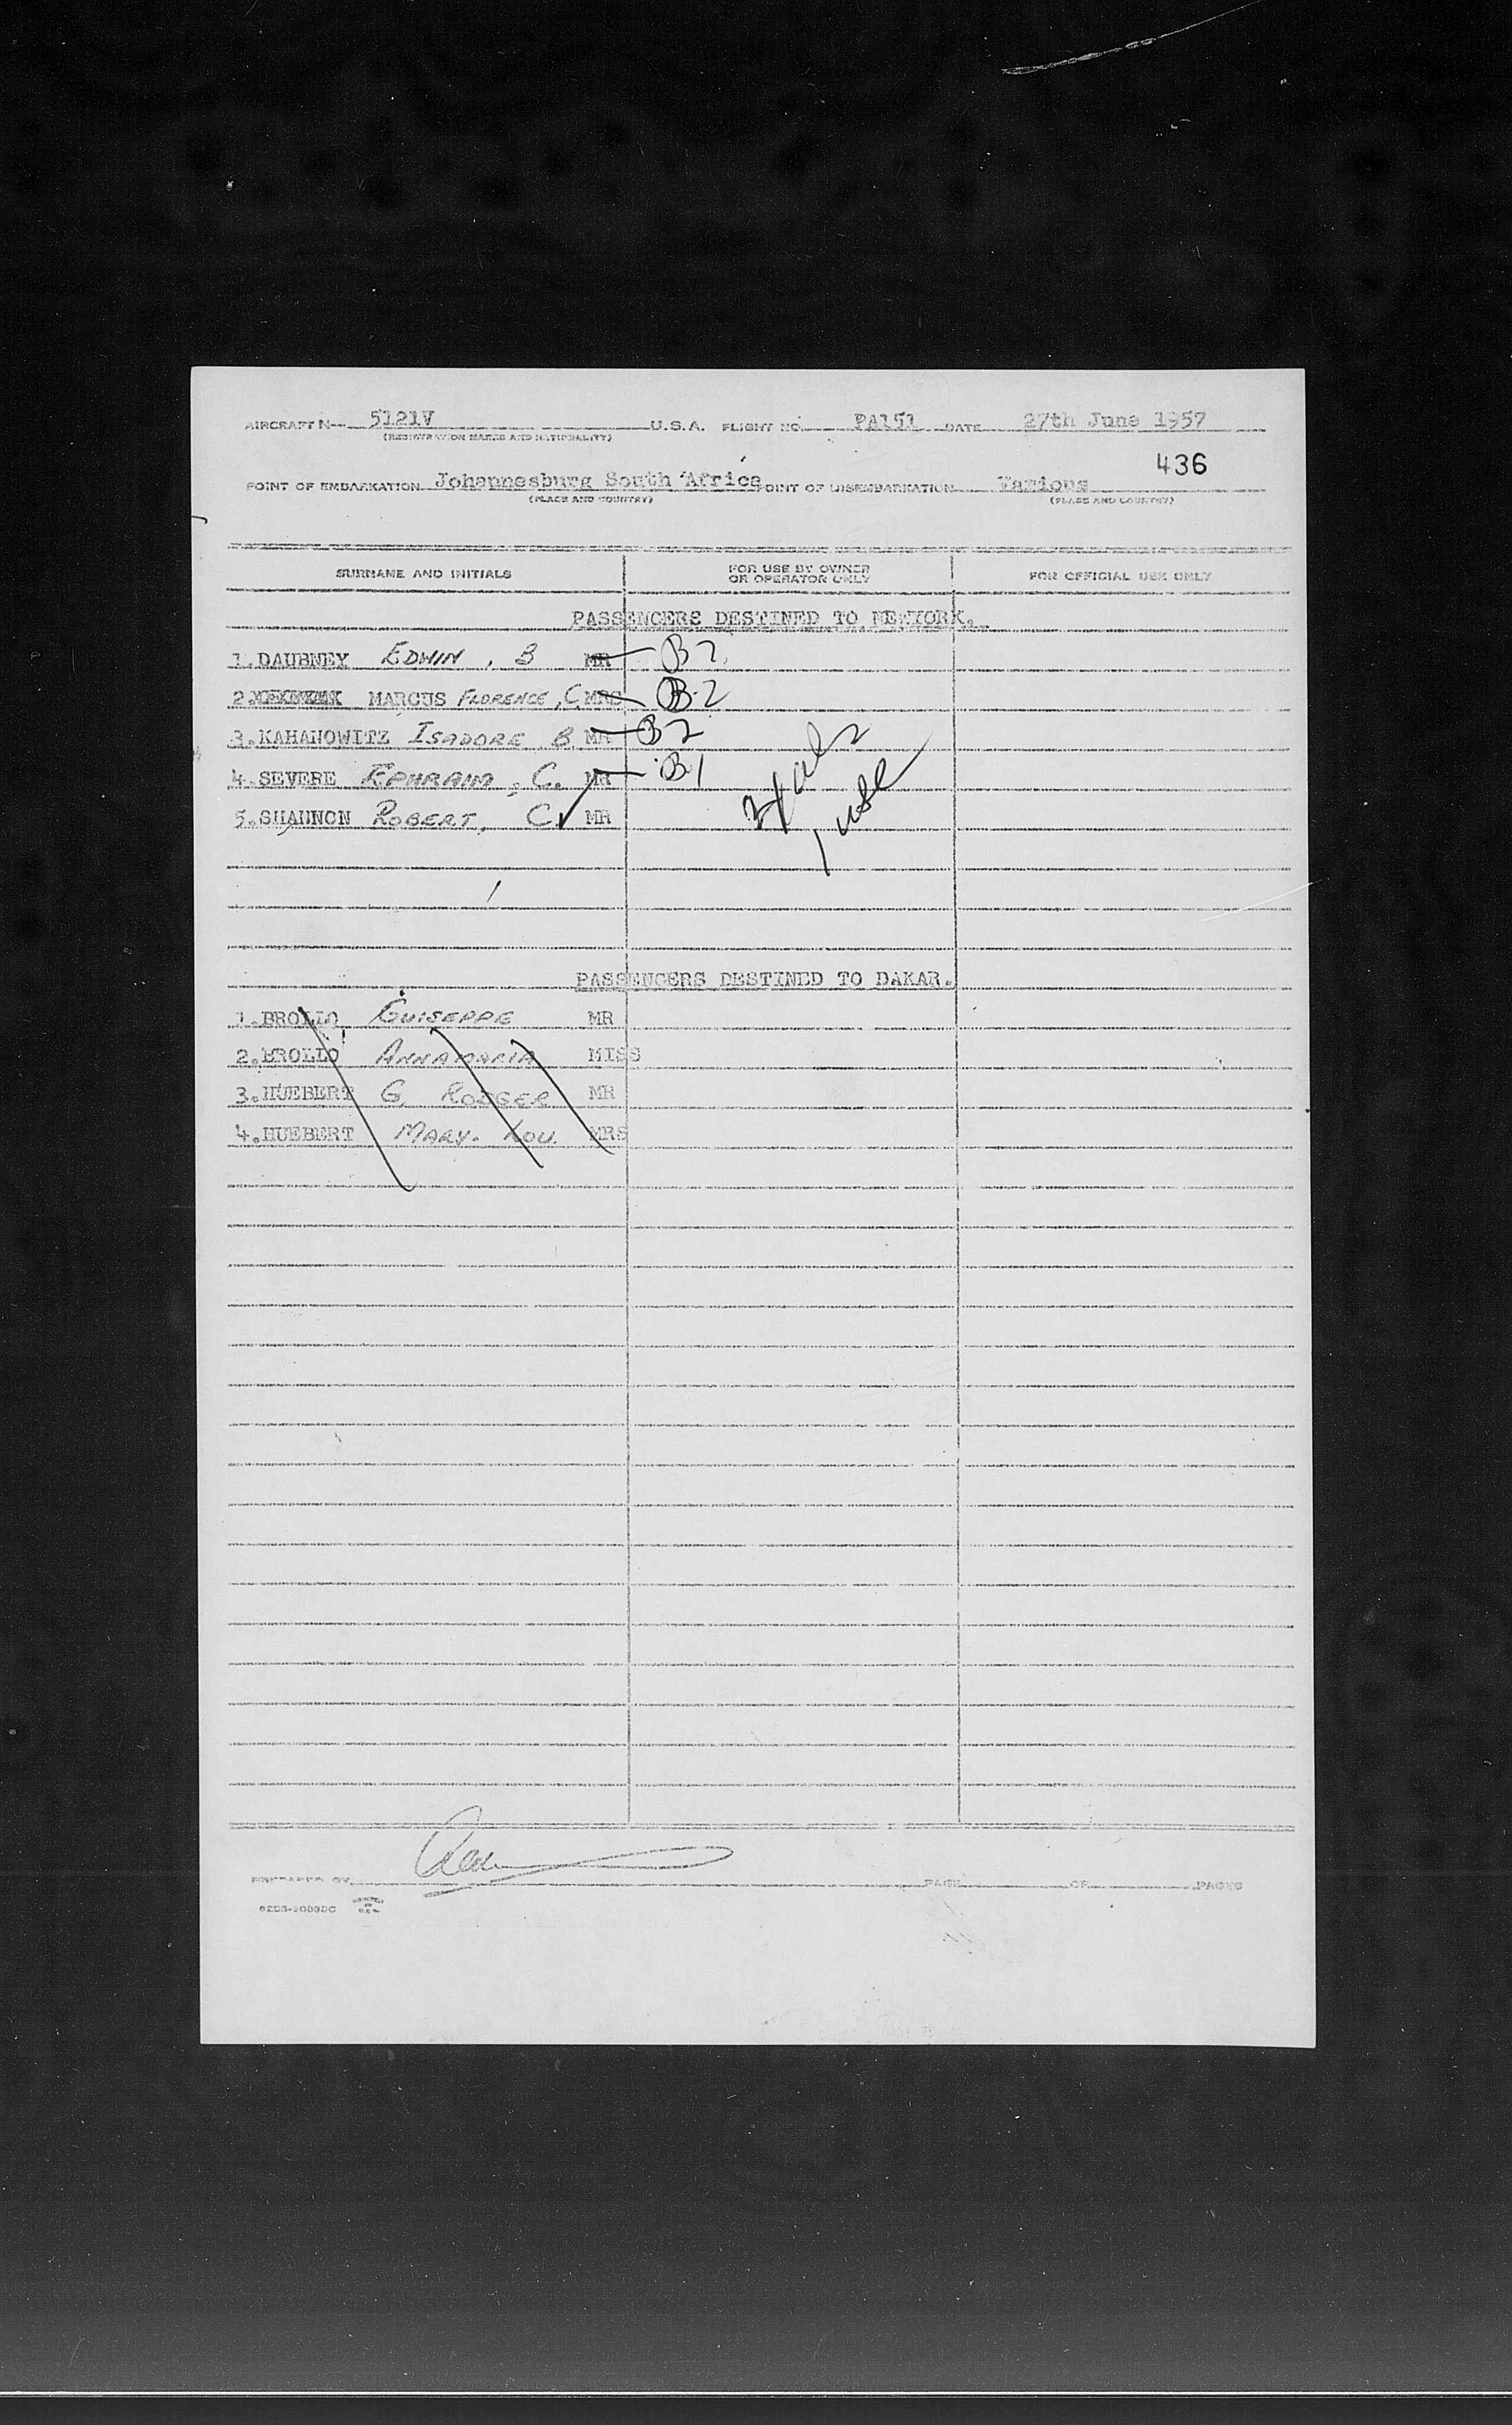 AIRCRAFT N-- 5121V U.S.A. FLIGHT NO. PA151 DATE 27th June 1957
(REGISTRATION MARKS AND NATIONALITY)
436
POINT OF EMBARKATION Johannesburg South Africa POINT OF DISEMBARKATION Various
(PLACE AND COUNTRY) (PLACE AND COUNTRY)
SURNAME AND INITIALS FOR USE BY OWNER OR OPERATOR ONLY FOR OFFICIAL USE ONLY
PASSENGERS DESTINED TO NEWYORK.
1.DAUBNEY EDWIN, B MR B2
2. MARCUS FLORENCE, C. MRS B-2
3.KAHANOWITZ ISADORE B. MR B2
4.SEVERE EPHRAIM, C. MR B1
5.SHANNON ROBERT, C. MR
1 use
PASSENGERS DESTINED TO DAKAR.
1.BROLLO GUISEPPE MR
2.BROLLO ANNAMARIA MISS
3.HUEBERT G. RODGER MR
4.HUEBERT MARY. LOU. MRS
PREPARED BY PAGE OF PAGES